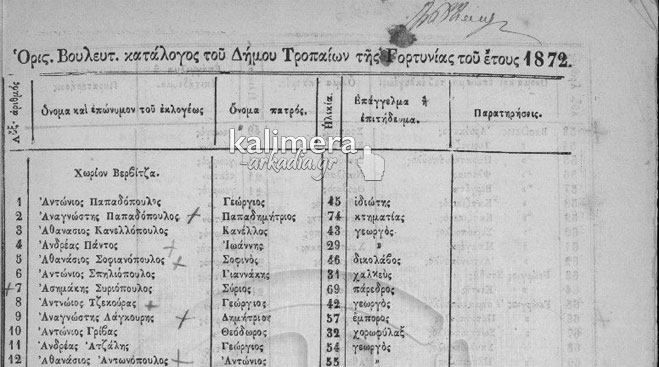 Ὁρις. Βουλευτ. κατάλογος τοῦ Δήμου Τροπαίων τῆς Γορτυνίας τοῦ ἔτους 1872.
Αὔξ. ἀριθμός Ὄνομα καὶ ἐπώνυμον τοῦ ἐκλογέως Ὄνομα πατρός. Ἡλικία. Ἐπάγγελμα ἢ ἐπιτήδευμα. Παρατηρήσεις.
kalimera
-arkadia.gr
Χωρίον Βερβίτζα.
1 Ἀντώνιος Παπαδόπουλος Γεώργιος 45 ἰδιώτης
2 Ἀναγνώστης Παπαδόπουλος Παπαδημήτριος 74 κτηματίας
3 Ἀθανασιος Κανελλόπουλος Κανέλλος 43 γεωργὸς
4 Ἀνδρέας Πάντος Ἰωάννης 29 »
5 Ἀθανάσιος Σοφιανόπουλος Σοφινὸς 46 δικολάβος
6 Ἀντώνιος Σπηλιόπουλος Γιαννάκης 31 χαλκεὺς
7 Ἀσημάκης Συριόπουλος Σύριος 69 πάρεδρος
8 Ἀντώιος Τζεκούρας Γεώργιος 42 γεωργὸς
9 Ἀναγνώστης Λάγκουρης Δημήτριος 57 ἔμπορος
10 Ἀντώνιος Γρίβας Θεόδωρος 32 χωροφύλαξ
11 Ἀνδρέας Ἀτζάλης Γεώργιος 54 γεωργὸς
12 Ἀθανάσιος Ἀντωνόπουλος Ἀντώνιος 55 »